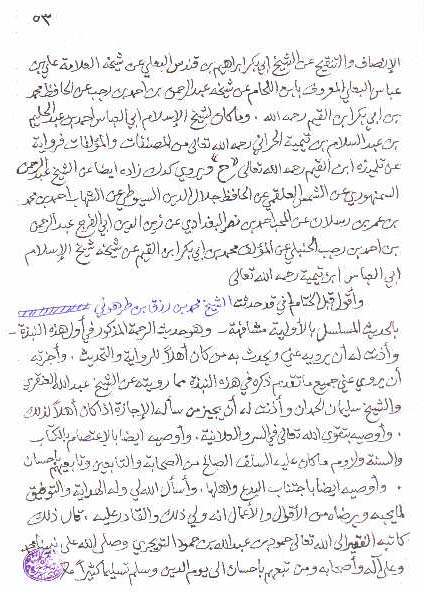 ٥٣
الإنصاف والتنقيح عن الشيخ أبي بكر ابراهيم بن قندس البعلي عن شيخه العلامة علي بن
عباس البعلي المعروف بابن اللحام عن شيخه عبدالرحمن بن احمد بن رجب عن الحافظ محمد
بن ابي بكر ابن القيم رحمه الله . وما كان لشيخ الإسلام ابي العباس احمد بن عبدالحليم
بن عبدالسلام بن تيمية الحراني رحمه الله تعالى من المصنفات والمؤلفات فرواية
عن تلميذه ابن القيم رحمه الله تعالى «ح» ويروي كدك زاده ايضا عن الشيخ عبدالرحمن
السمنهوري عن الشمس العلقمي عن الحافظ جلال الدين السيوطي عن الشهاب احمد بن محمد
بن عمر بن رسلان عن المحب احمد بن نصر البغدادي عن زين الدين ابي الفرج عبدالرحمن
بن احمد بن رجب الحنبلي عن المؤلف محمد بن ابي بكر ابن القيم عن شيخه شيخ الإسلام
ابي العباس ابن تيمية رحمه الله تعالى
وأقول قبل الختام اني قد حدثت الشيخ محمد بن رزق بن طرهوني
بالحديث المسلسل بالأولية مشافهة - وهو حديث الرحمة المذكور في أول هذه النبذة -
وأذنت له أن يرويه عني ويحدث به من كان أهلاً للرواية والتحديث . وأجزته
أن يروي عني جميع ما تقدم ذكره في هذه النبذة مما رويته عن الشيخ عبدالله العنقري
والشيخ سليمان الحمدان وأذنت له أن يجيز من سأله الإجازة اذا كان أهلاً لذلك
. وأوصيه بتقوى الله تعالى في السر والعلانية . وأوصيه ايضا بالإعتصام بالكتاب
والسنة ولزوم ما كان عليه السلف الصالح من الصحابة والتابعين وتابعيهم بإحسان
. وأوصيه ايضا باجتناب البدع واهلها . وأسأل الله لي وله الهداية والتوفيق
لما يحبه ويرضاه من الأقوال والأعمال انه ولي ذلك والقادر عليه . قال ذلك
كاتبه الفقير الى الله تعالى حمود بن عبدالله بن حمود التويجري وصلى الله على نبينا محمد
وعلى آله وأصحابه ومن تبعهم بإحسان الى يوم الدين وسلم تسليما كثيراً